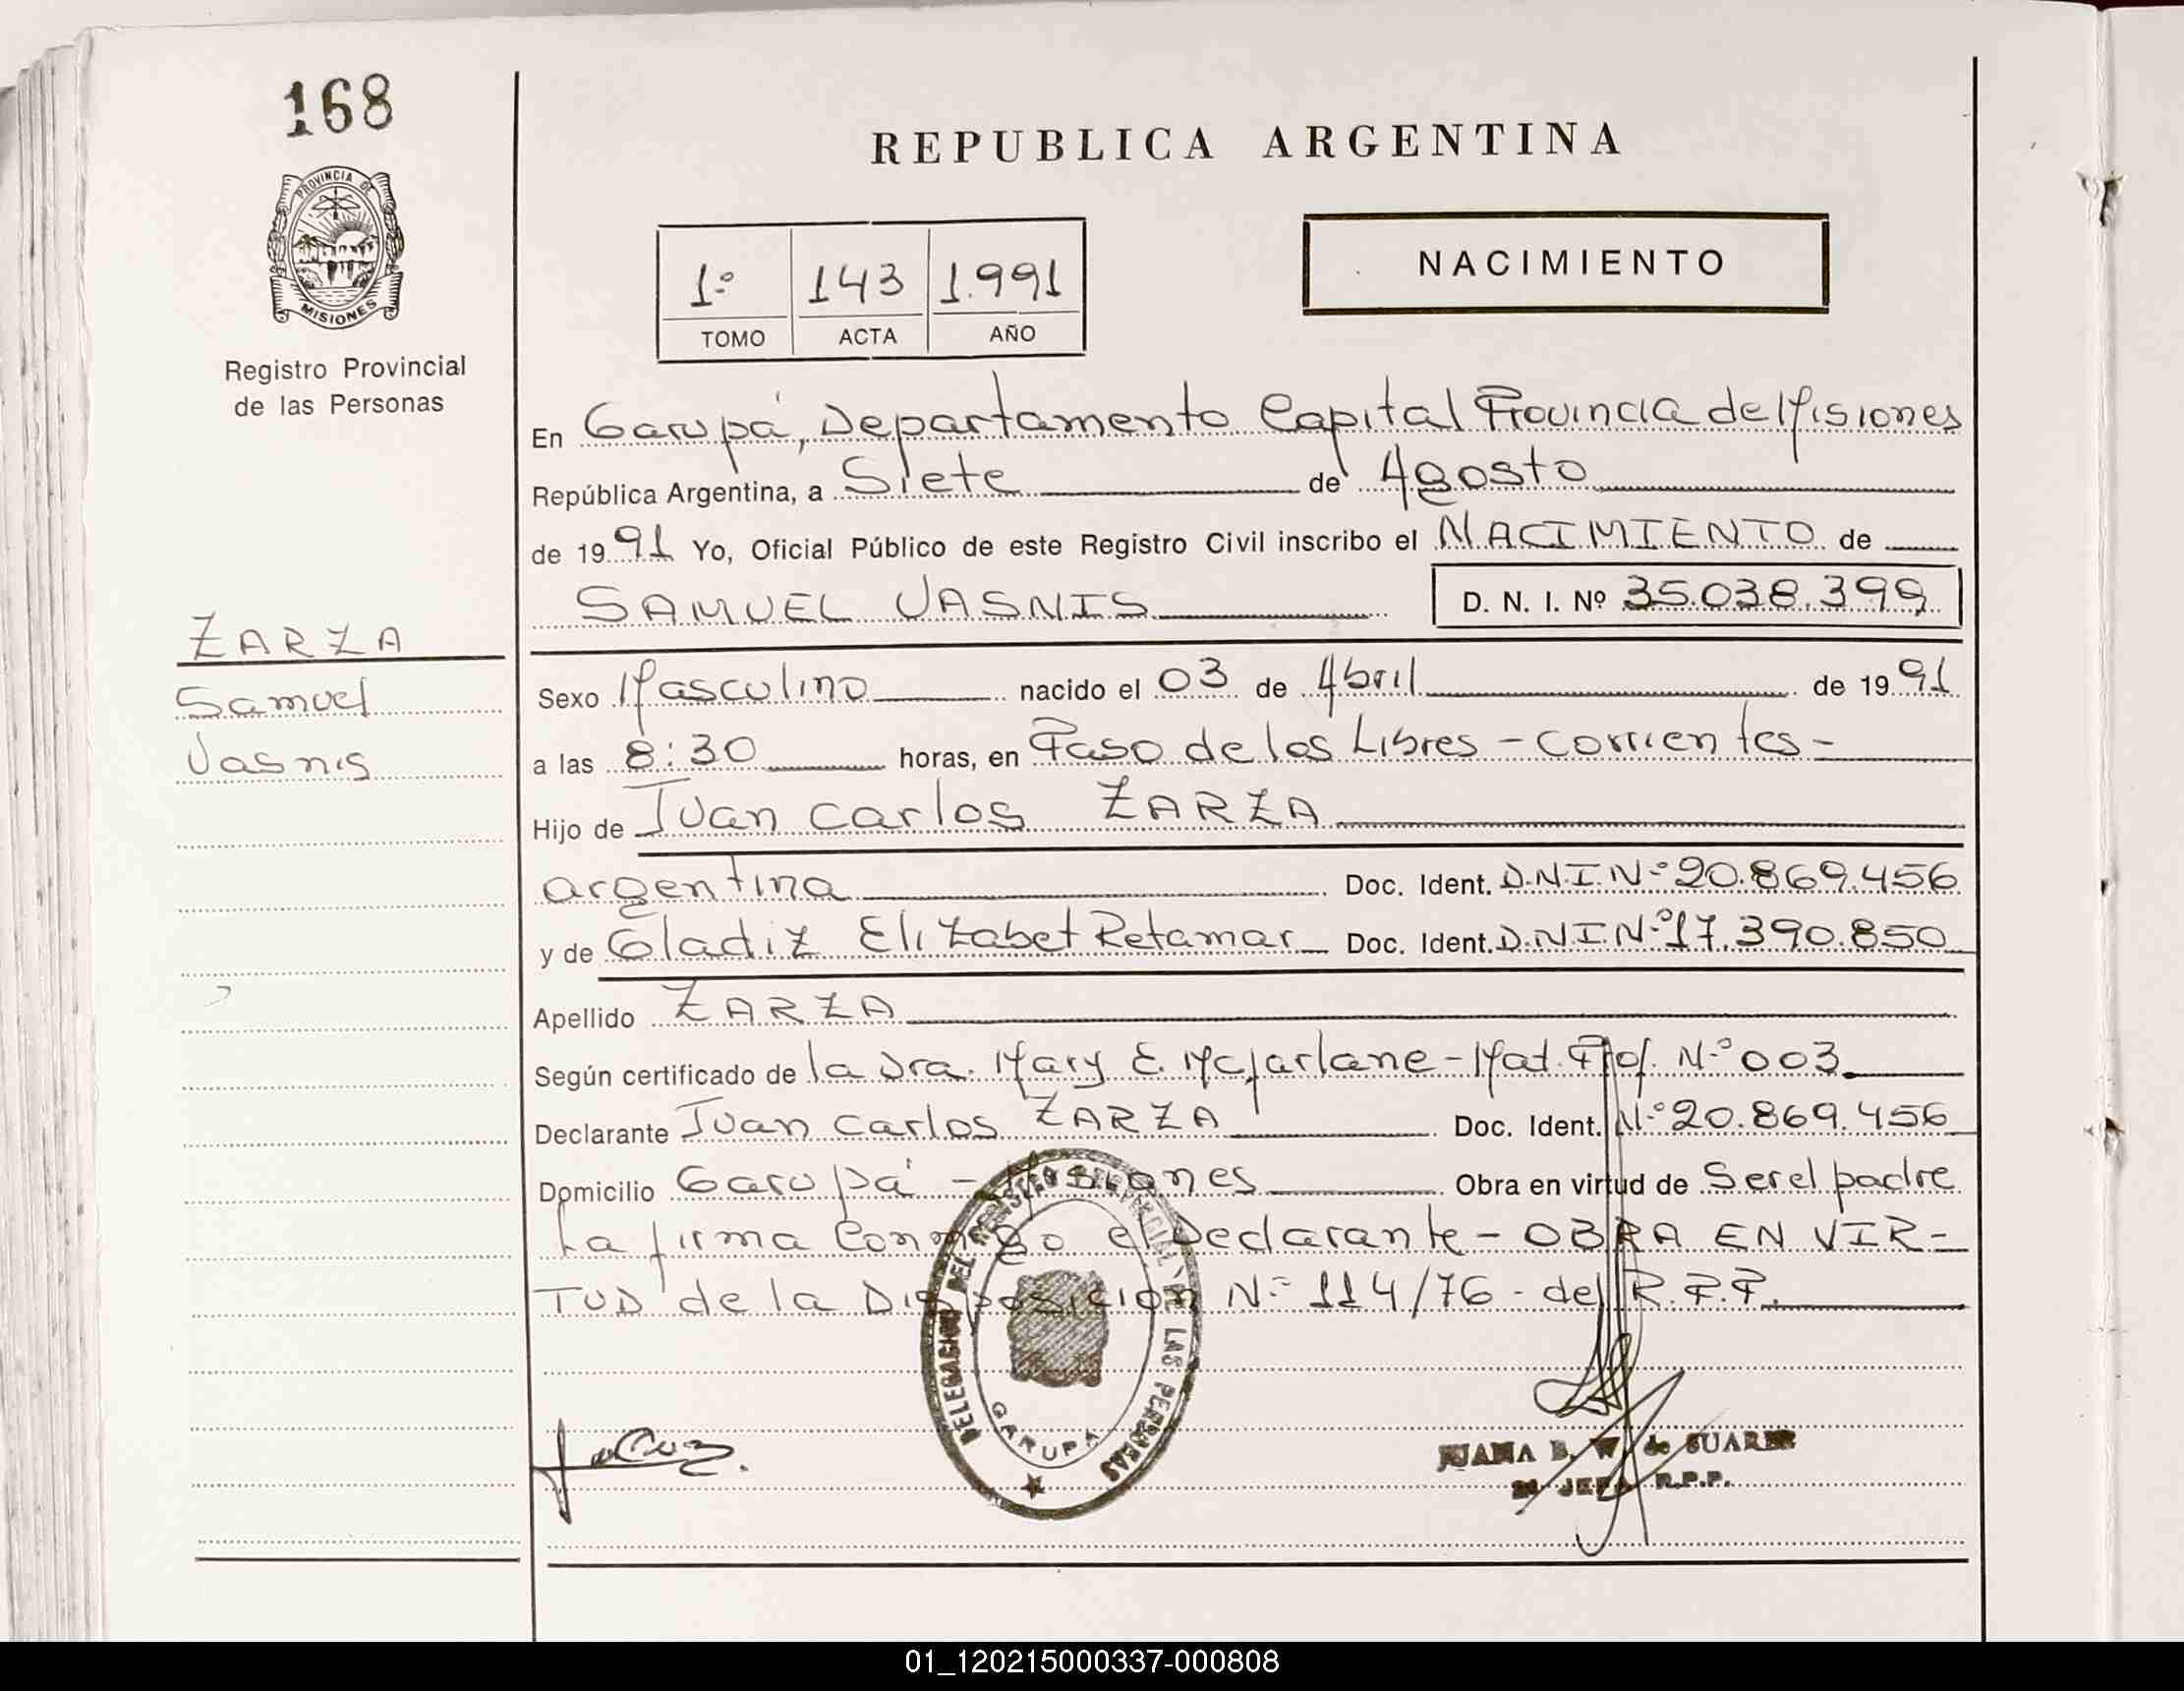 168
PROVINCIA DE
MISIONES
Registro Provincial
de las Personas
ZARZA
Samuel
Jasnis
REPUBLICA ARGENTINA
1º 143 1.991
TOMO ACTA AÑO
NACIMIENTO
En Garupá, Departamento Capital Provincia de Misiones
República Argentina, a Siete de Agosto
de 1991 Yo, Oficial Público de este Registro Civil inscribo el NACIMIENTO de
SAMUEL JASNIS D. N. I. Nº 35.038.399
Sexo Masculino nacido el 03 de Abril de 1991
a las 8:30 horas, en Paso de los Libres - Corrientes -
Hijo de Juan Carlos ZARZA
argentina Doc. Ident. D.N.I. Nº 20.869.456
y de Gladiz Elizabet Retamar Doc. Ident. D.N.I Nº 17.390.850
Apellido ZARZA
Según certificado de la Dra. Mary E. Mcfarlane - Mat. Prof. Nº 003
Declarante Juan Carlos ZARZA Doc. Ident. Nº 20.869.456
Domicilio Garupá - Misiones Obra en virtud de Ser el padre
La firma Conmigo el Declarante - OBRA EN VIR-
TUD de la Disposicion Nº 114/76 - del R.P.P.
DELEGACION DEL REGISTRO PROVINCIAL DE LAS PERSONAS
GARUPA
JUANA B. W. de SUAREZ
JEFA R.P.P.
01_120215000337-000808